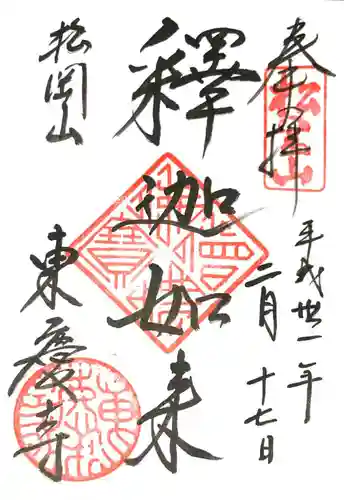 奉拝
平成卅一年
二月十七日
釋迦如来
松岡山
東慶寺